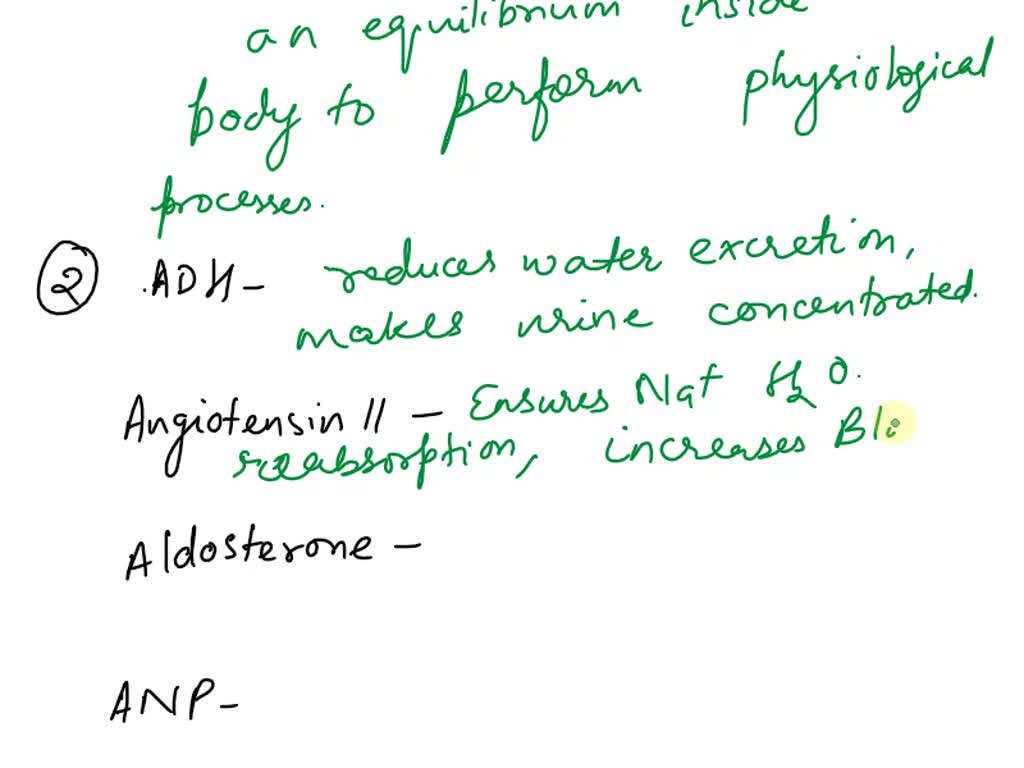 an equilibrium inside
body to perform physiological
processes.
② ADH - reduces water excretion,
makes urine concentrated.
Angiotensin II - Ensures Na+ H2O.
reabsorption, increases Bl
Aldosterone -
ANP -